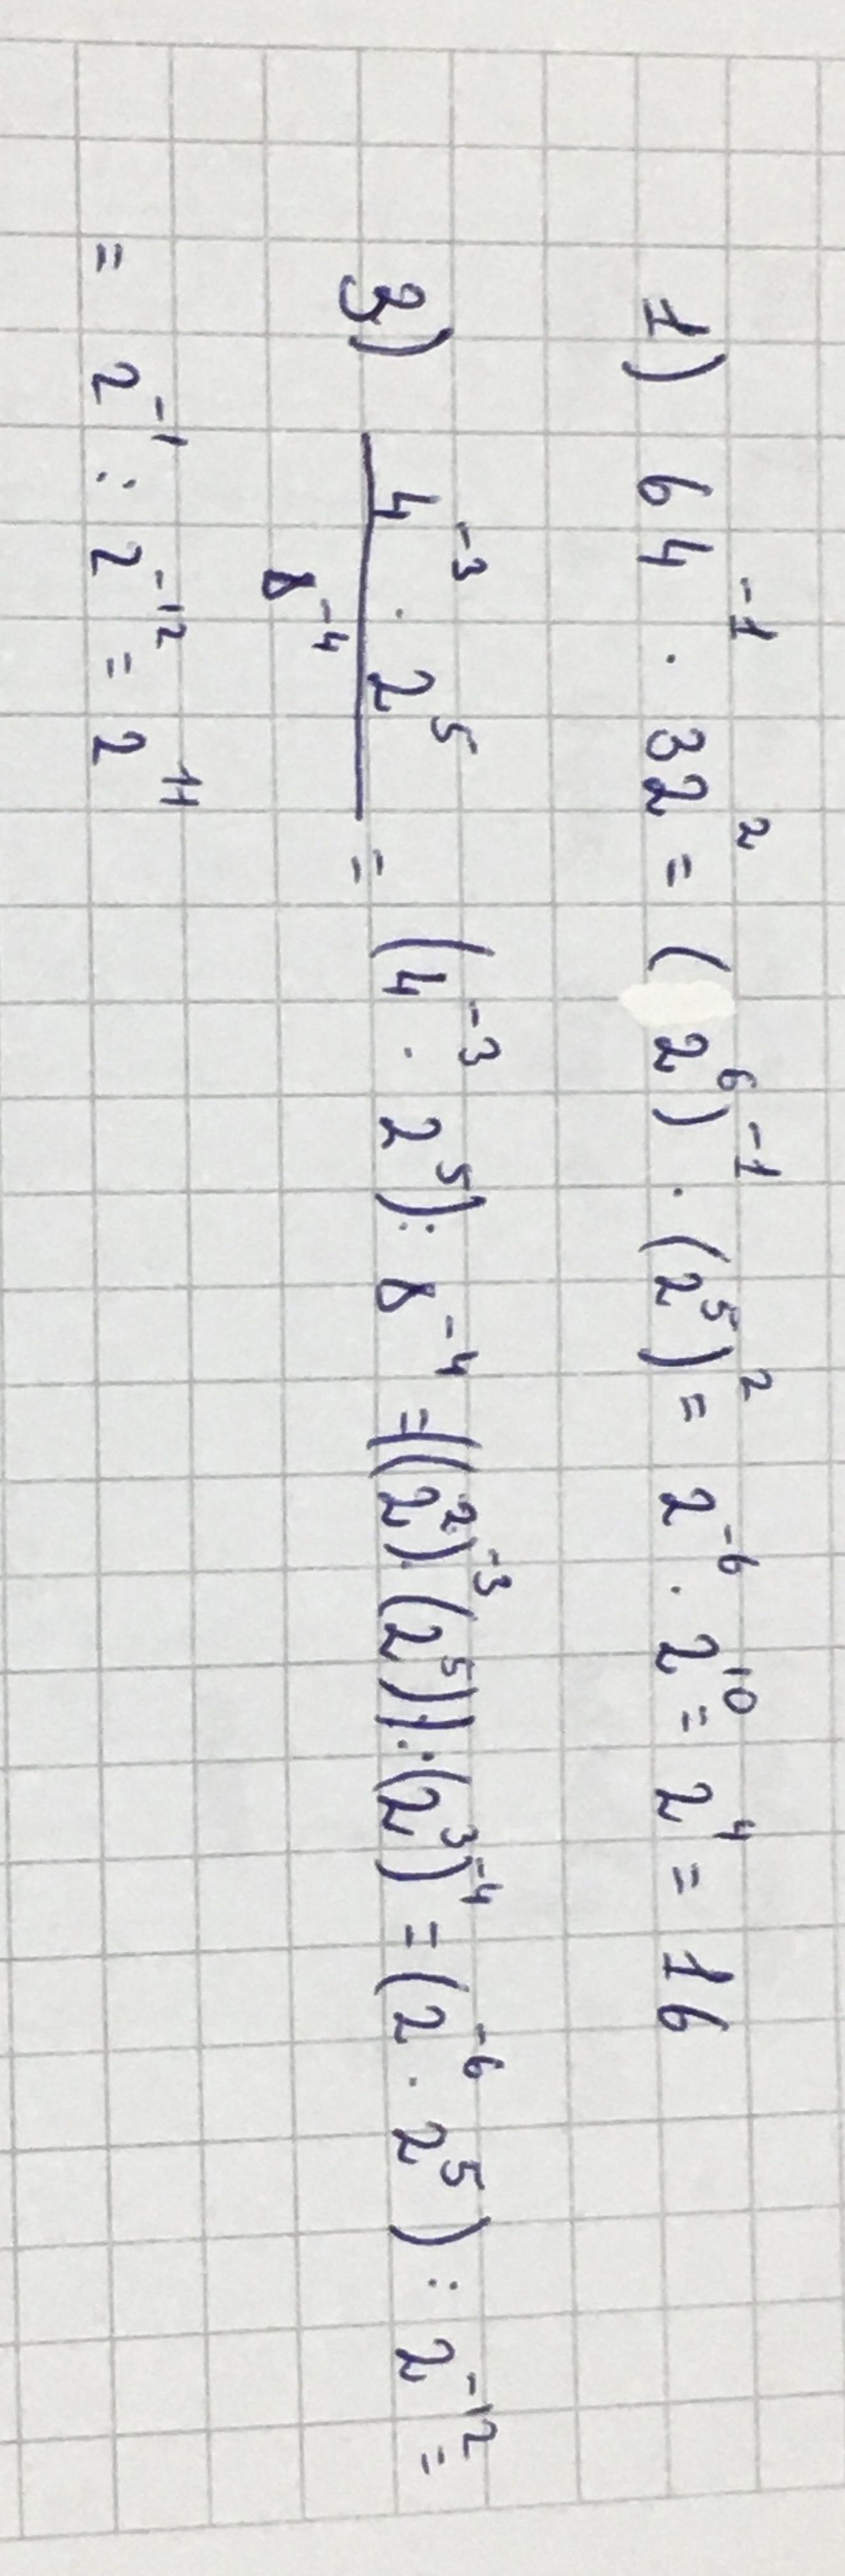 1) 64⁻¹ · 32² = (2⁶)⁻¹ · (2⁵)² = 2⁻⁶ · 2¹⁰ = 2⁴ = 16
3) (4⁻³ · 2⁵)/8⁻⁴ = (4⁻³ · 2⁵) : 8⁻⁴ = ((2²)⁻³ · (2⁵)) : (2³)⁻⁴ = (2⁻⁶ · 2⁵) : 2⁻¹² =
= 2⁻¹ : 2⁻¹² = 2¹¹